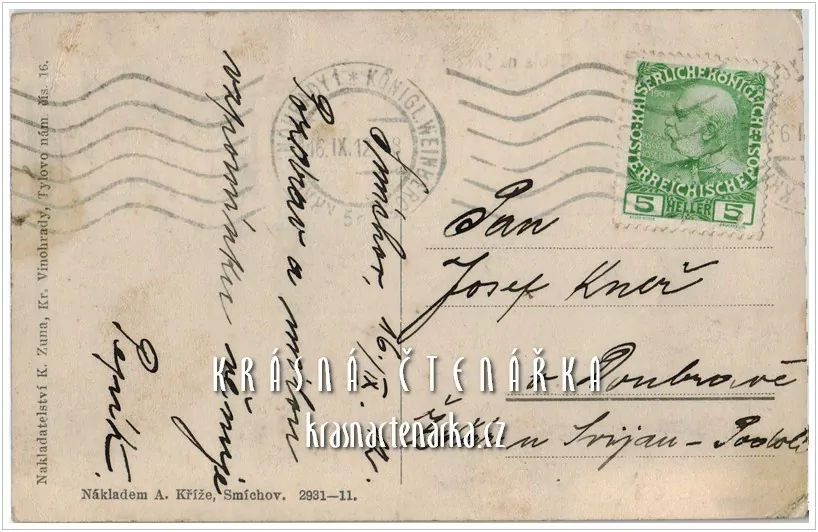 Nakladatelství K. Zuna, Kr. Vinohrady, Tylovo nám. čís. 16.
Smíchov, 16./IX. 12.
Pozdrav a milou
vzpomínku věnuje
Pepík.
Nákladem A. Kříže, Smíchov. 2931—11.
KÖNIGL. WEINBERGE
16.IX.12
KAISERLICHE KÖNIGLICHE POST
ÖSTERREICHISCHE
5 HELLER 5
Pan
Josef Kneř
v Doubravě
u Svijan-Podolí
KRÁSNÁ ČTENÁŘKA
krasnactenarka.cz